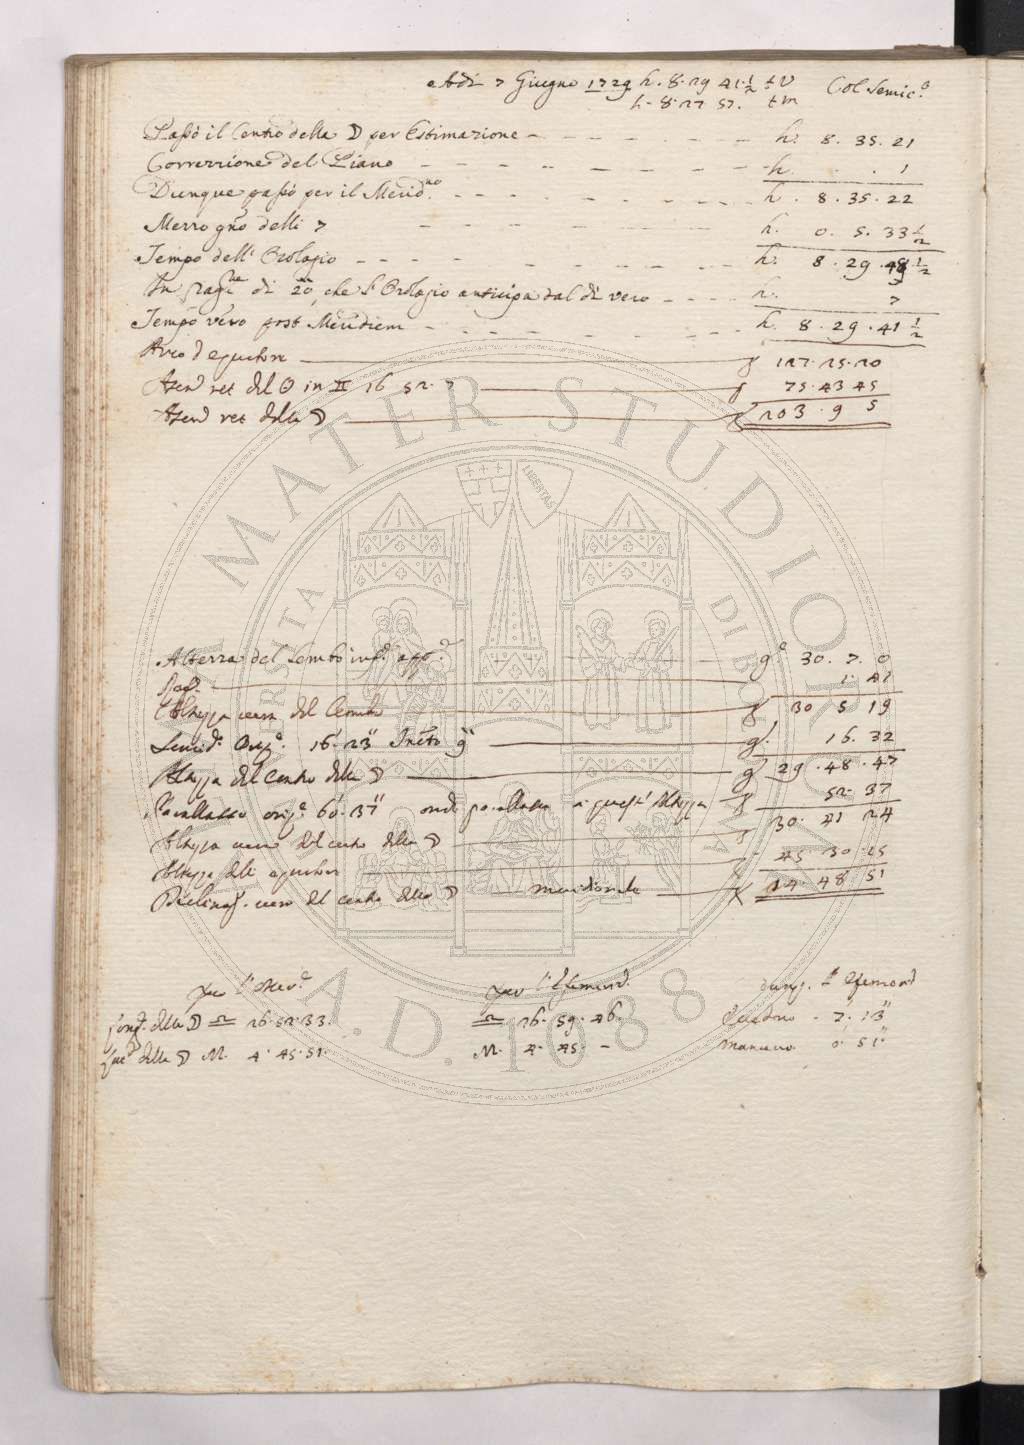 Adi 7 Giugno 1729 h. 8. 29 41 1/2 t V Col Semic.o
h. 8. 27 57. t m
Passò il Centro della ☽ per Estimazione h. 8. 35. 21
Correzzione del Piano h. . . 1
Dunque passò per il Merid.no h. 8. 35. 22
Mezzo gno delli 7 h. 0. 5. 33 1/2
Tempo dell' Orologio h. 8. 29. 48 1/2
In di che l' Orologio anticipa dal dì vero h. 7
Tempo vero post Meridiem h. 8. 29. 41 1/2
Arco d'equatore g 127. 25. 20
Ascen ret del ☉ in ♊ 16 52. 7 g 75. 43 45
Ascen ret della ☽ g 203. 9 5
Altezza del Lembo inf. g. 30. 7. 0
1. 41
Altezza vera del Lembo g 30 5 19
Semid. Oriz. 16' 23" g. 16. 32
Altezza del Centro della ☽ g 29. 48. 47
Parallasse oriz. 60' 37" onde parallasse a quest' Altezza g 52. 37
Altezza vera del centro della ☽ g 30. 41 24
Altezza dell' equatore 45 30 15
Declinaz. vera del centro della ☽ meridionale g 14. 48 51
per l'Osser. per l'Efemerid. l'Efemerid
Long. della ☽ ♎ 26. 52. 33. ♎ 26. 59. 46. 7. 13"
Lat. della ☽ M. 4. 45. 51. M. 4. 45. – 0' 51"
ALMA MATER STUDIORUM
UNIVERSITA DI BOLOGNA
LIBERTAS
A.D. 1088